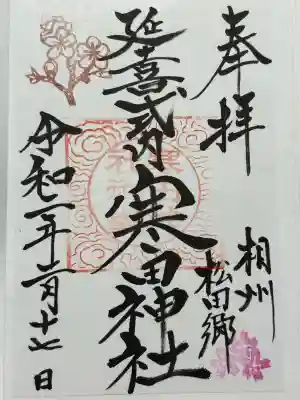 奉拝
相州
松田郷
延喜式内
寒田神社
令和二年二月十七日